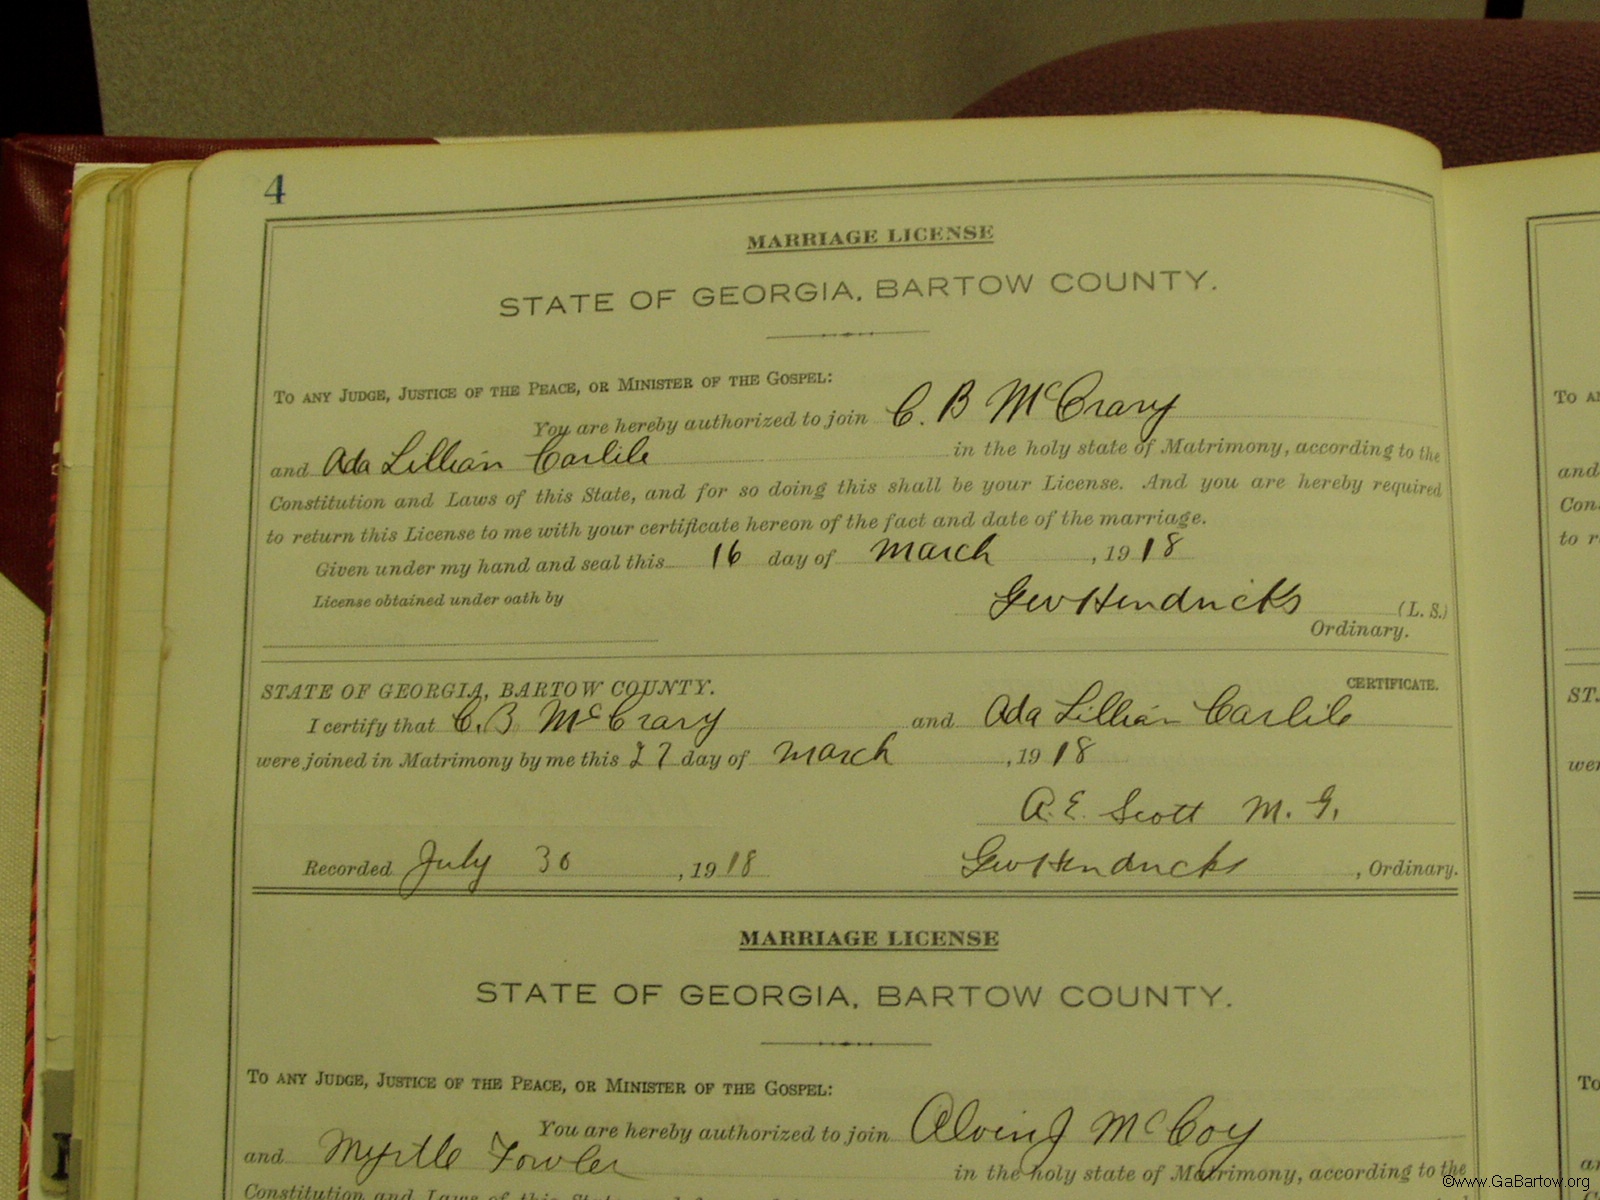 4
MARRIAGE LICENSE
STATE OF GEORGIA, BARTOW COUNTY.
TO ANY JUDGE, JUSTICE OF THE PEACE, OR MINISTER OF THE GOSPEL:
You are hereby authorized to join C. B McCrary
and Ada Lillian Carlile in the holy state of Matrimony, according to the
Constitution and Laws of this State, and for so doing this shall be your License. And you are hereby required
to return this License to me with your certificate hereon of the fact and date of the marriage.
Given under my hand and seal this 16 day of March, 1918
License obtained under oath by
Geo W Hendricks (L. S.)
Ordinary.
STATE OF GEORGIA, BARTOW COUNTY. CERTIFICATE.
I certify that C. B McCrary and Ada Lillian Carlile
were joined in Matrimony by me this 27 day of March, 1918
A. E. Scott M. G.
Recorded July 30, 1918 Geo W Hendricks, Ordinary.
MARRIAGE LICENSE
STATE OF GEORGIA, BARTOW COUNTY.
TO ANY JUDGE, JUSTICE OF THE PEACE, OR MINISTER OF THE GOSPEL:
You are hereby authorized to join Alvin J McCoy
and Myrtle Fowler in the holy state of Matrimony, according to the
Constitution and Laws of this State
To
and
to r
ST.
wer
To
©www.GaBartow.org